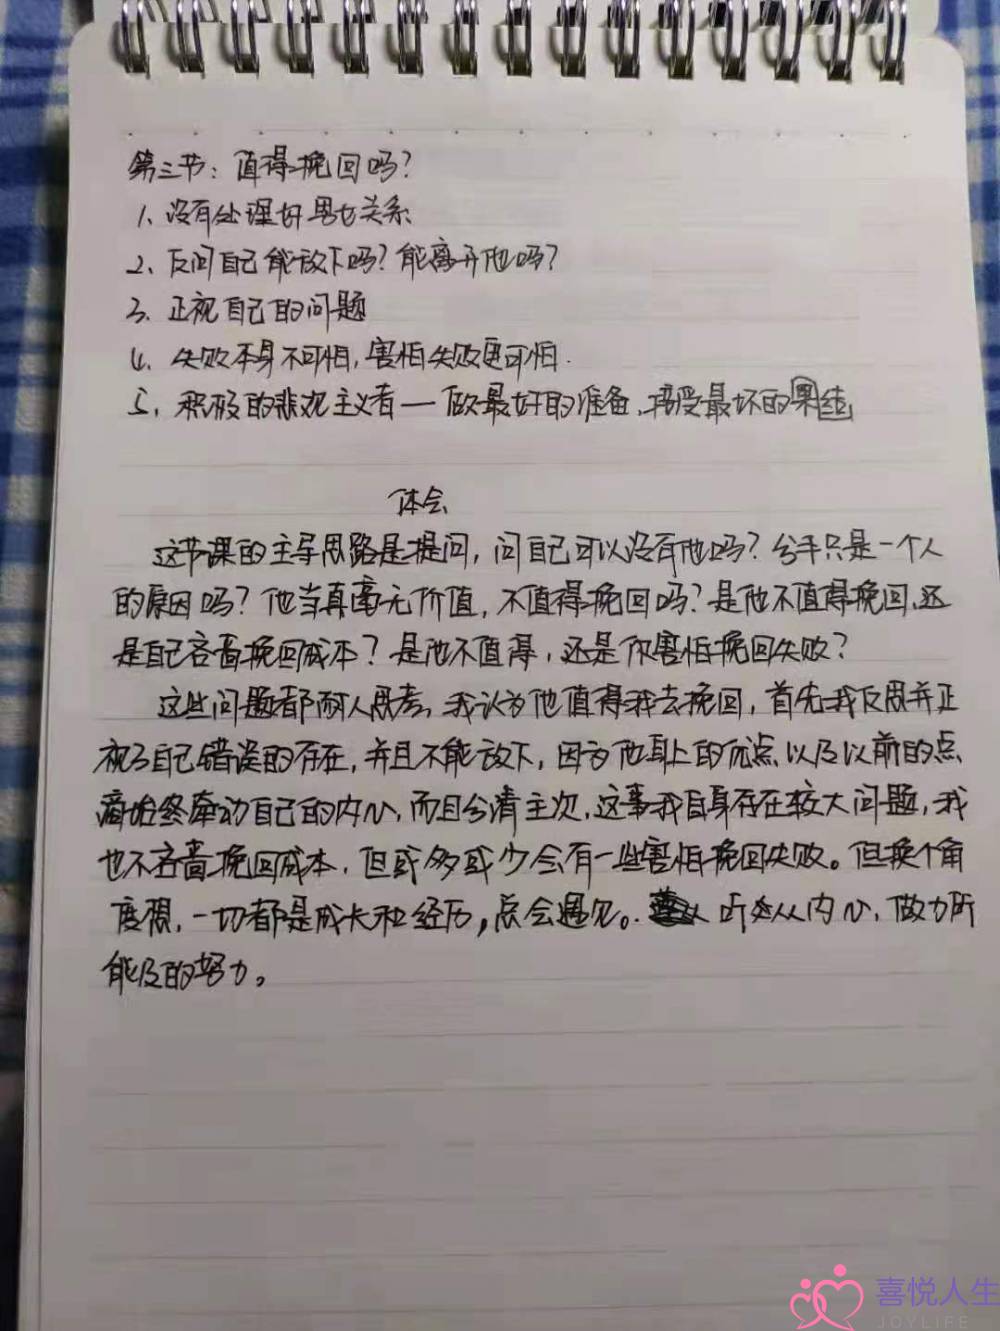 第三节：值得挽回吗？
1、没有处理好男女关系
2、反问自己能放下吗？能离开他吗？
3、正视自己的问题
4、失败本身不可怕，害怕失败更可怕.
5、积极的悲观主义者—做最好的准备、接受最坏的果结
体会
这节课的主导思路是提问，问自己可以没有他吗？分手只是一个人
的原因吗？他当真毫无价值，不值得挽回吗？是他不值得挽回，还
是自己吝啬挽回成本？是他不值得，还是你害怕挽回失败？
这些问题都耐人思考，我认为他值得我去挽回，首先我反思并正
视了自己错误的存在，并且不能放下，因为他身上的优点以及以前的点
滴始终牵动自己的内心，而且分清主次，这事我自身存在较大问题，我
也不吝啬挽回成本，但或多或少会有一些害怕挽回失败。但换个角
度想，一切都是成长和经历，总会遇见。听从内心，做力所
能及的努力。
喜悦人生
JOYLIFE